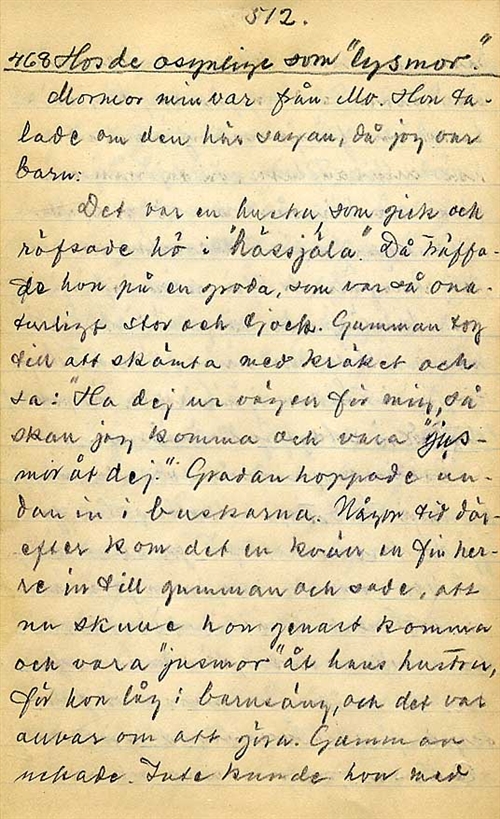 512.
468 Hos de osynlige som "lysmor."
Mormor min var från Mo. Hon ta-
lade om den här sagan, då jag var
barn:
Det var en hustru, som gick och
räfsade hö i "hässjåla". Då träffa-
de hon på en groda, som var så ona-
turligt stor och tjock. Gumman tog
till att skämta med kräket och
sa: "Ha dej ur vägen för mig, så
skan jag komma och vara "jus-
mor åt dej." Grodan hoppade un-
dan in i buskarna. Någon tid där-
efter kom det en kväll en fin her-
re in till gumman och sade, att
nu skulle hon genast komma
och vara "jusmor" åt hans hustru,
för hon låg i barnsäng, och det var
annar om att göra. Gumman
nekade. Inte kunde hon med